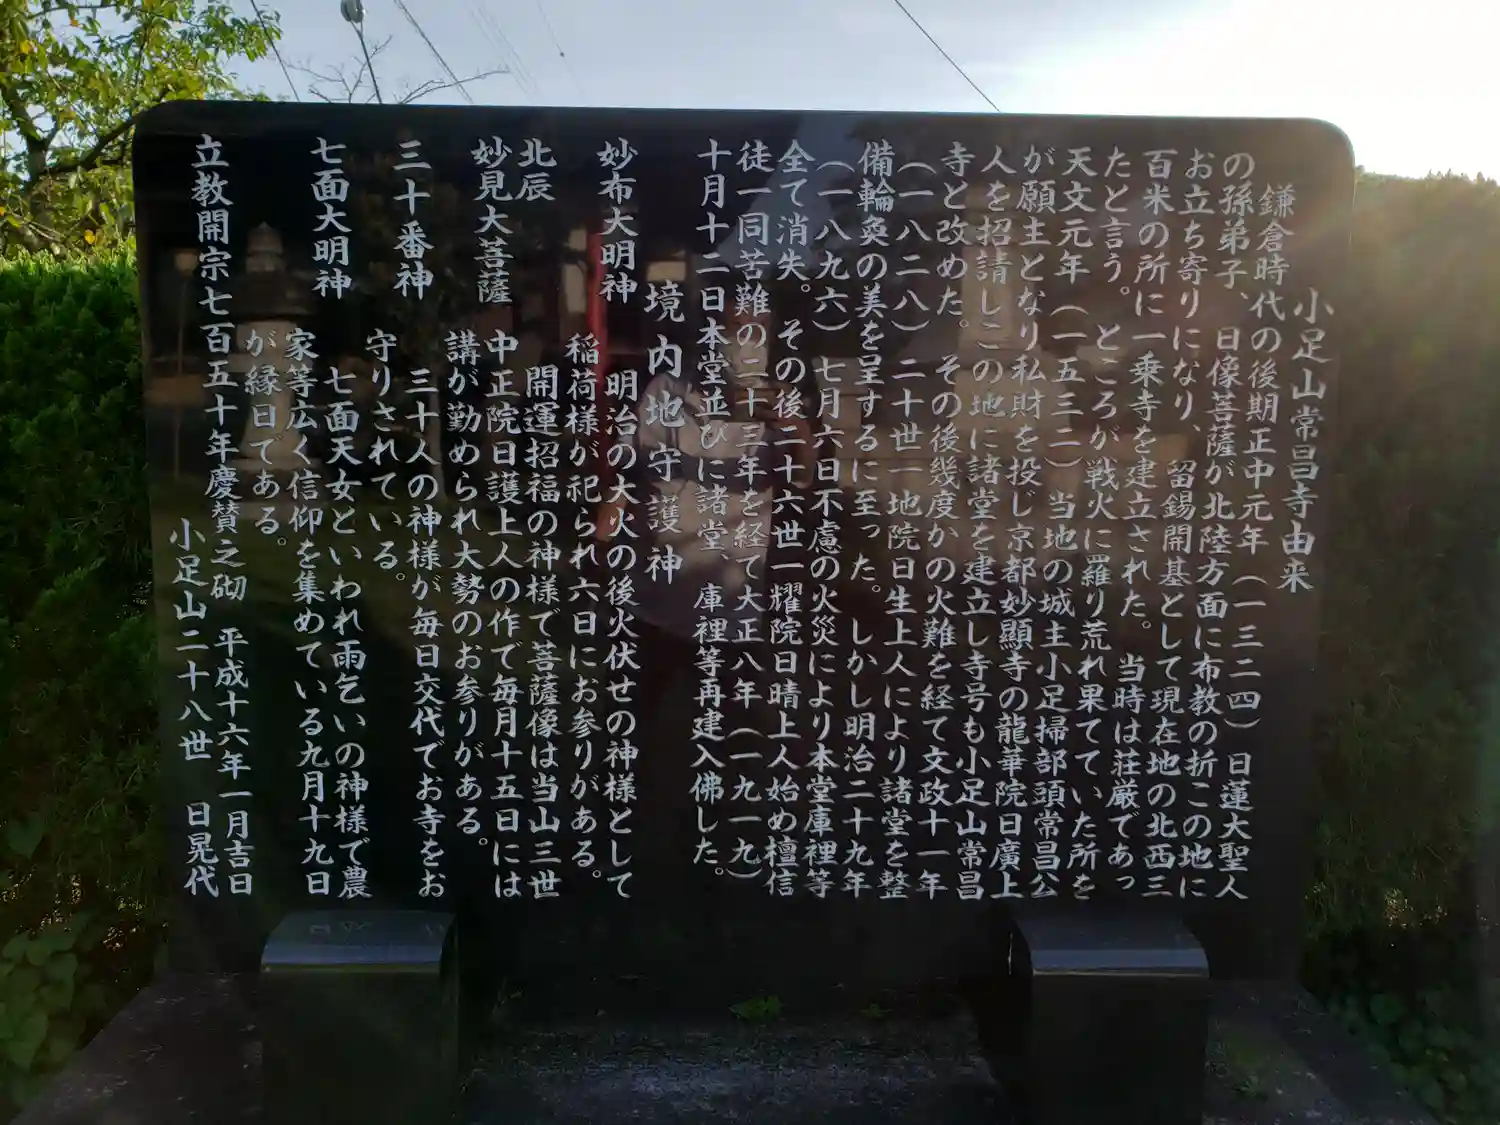 小足山常昌寺由来
鎌倉時代の後期正中元年（一三二四）日蓮大聖人
の孫弟子、日像菩薩が北陸方面に布教の折この地に
お立ち寄りになり、留錫開基として現在地の北西三
百米の所に一乗寺を建立された。当時は荘厳であっ
たと言う。ところが戦火に罹り荒れ果てていた所を
天文元年（一五三二）当地の城主小足掃部頭常昌公
が願主となり私財を投じ京都妙顯寺の龍華院日廣上
人を招請しこの地に諸堂を建立し寺号も小足山常昌
寺と改めた。その後幾度かの火難を経て文政十一年
（一八二八）二十世一地院日生上人により諸堂を整
備輪奐の美を呈するに至った。しかし明治二十九年
（一八九六）七月六日不慮の火災により本堂庫裡等
全て消失。その後二十六世一耀院日晴上人始め檀信
徒一同苦難の二十三年を経て大正八年（一九一九）
十月十二日本堂並びに諸堂、庫裡等再建入佛した。
境内地守護神
妙布大明神　明治の大火の後火伏せの神様として
稲荷様が祀られ六日にお参りがある。
北辰
妙見大菩薩　開運招福の神様で菩薩像は当山三世
中正院日護上人の作で毎月十五日には
講が勤められ大勢のお参りがある。
三十番神　三十人の神様が毎日交代でお寺をお
守りされている。
七面大明神　七面天女といわれ雨乞いの神様で農
家等広く信仰を集めている九月十九日
が縁日である。
立教開宗七百五十年慶賛之砌　平成十六年一月吉日
小足山二十八世　日晃代